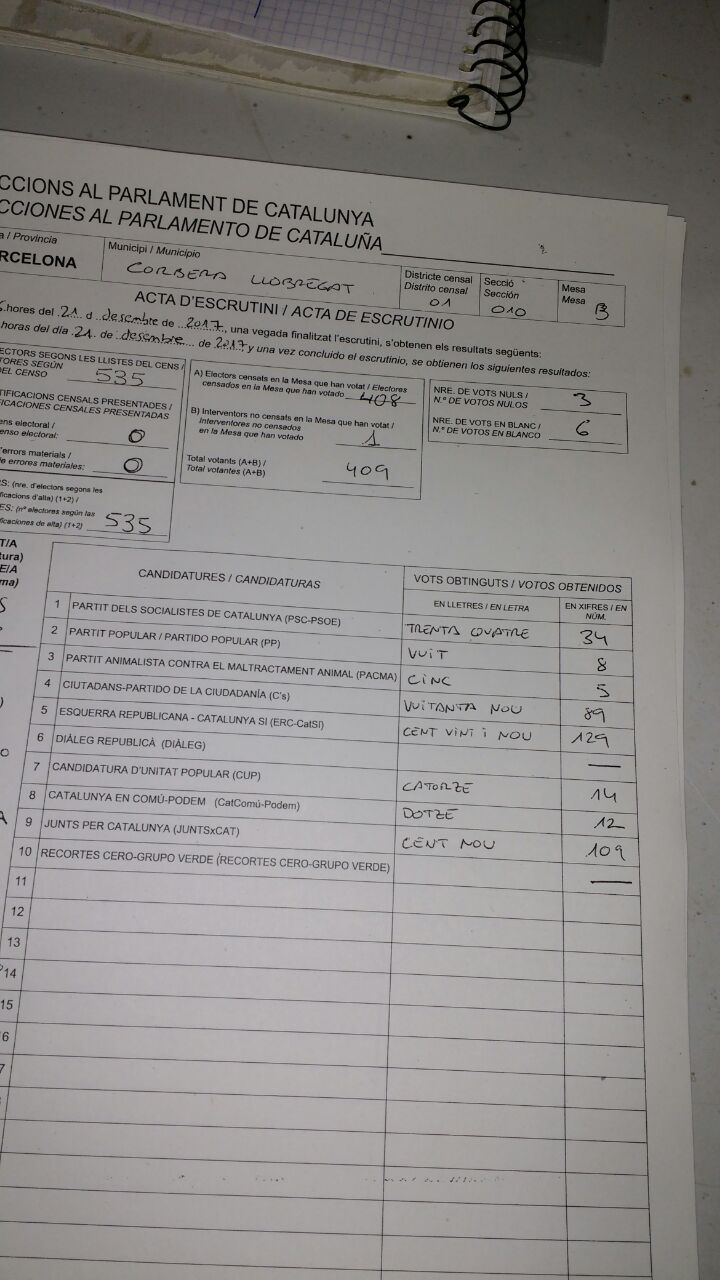 CCIONS AL PARLAMENT DE CATALUNYA
CCIONES AL PARLAMENTO DE CATALUÑA
a / Provincia
RCELONA
Municipi / Municipio
CORBERA LLOBREGAT
Districte censal
Distrito censal
01
Secció
Sección
010
Mesa
Mesa
B
ACTA D'ESCRUTINI / ACTA DE ESCRUTINIO
hores del 21 d desembre de 2017, una vegada finalitzat l'escrutini, s'obtenen els resultats següents:
horas del día 21 de desembre de 2017 y una vez concluido el escrutinio, se obtienen los siguientes resultados:
ECTORS SEGONS LES LLISTES DEL CENS /
TORES SEGÚN
DEL CENSO 535
TIFICACIONS CENSALS PRESENTADES /
FICACIONES CENSALES PRESENTADAS
ens electoral /
enso electoral: 0
'errors materials /
e errores materiales: 0
RS: (nre. d'electors segons les
ificacions d'alta) (1+2) /
ES: (nº electores según las
ificaciones de alta) (1+2) 535
A) Electors censats en la Mesa que han votat / Electores
censados en la Mesa que han votado 408
B) Interventors no censats en la Mesa que han votat /
Interventores no censados
en la Mesa que han votado 1
Total votants (A+B) /
Total votantes (A+B) 409
NRE. DE VOTS NULS /
N.º DE VOTOS NULOS 3
NRE. DE VOTS EN BLANC /
N.º DE VOTOS EN BLANCO 6
T/A
tura)
E/A
ma)
CANDIDATURES / CANDIDATURAS
VOTS OBTINGUTS / VOTOS OBTENIDOS
EN LLETRES / EN LETRA
EN XIFRES / EN NÚM.
1 PARTIT DELS SOCIALISTES DE CATALUNYA (PSC-PSOE) TRENTA QUATRE 34
2 PARTIT POPULAR / PARTIDO POPULAR (PP) VUIT 8
3 PARTIT ANIMALISTA CONTRA EL MALTRACTAMENT ANIMAL (PACMA) CINC 5
4 CIUTADANS-PARTIDO DE LA CIUDADANÍA (C's) VUITANTA NOU 89
5 ESQUERRA REPUBLICANA - CATALUNYA SI (ERC-CatSI) CENT VINT I NOU 129
6 DIÀLEG REPUBLICÀ (DIÀLEG) —
7 CANDIDATURA D'UNITAT POPULAR (CUP) CATORZE 14
8 CATALUNYA EN COMÚ-PODEM (CatComú-Podem) DOTZE 12
9 JUNTS PER CATALUNYA (JUNTSxCAT) CENT NOU 109
10 RECORTES CERO-GRUPO VERDE (RECORTES CERO-GRUPO VERDE) —
11
12
13
14
15
6
7